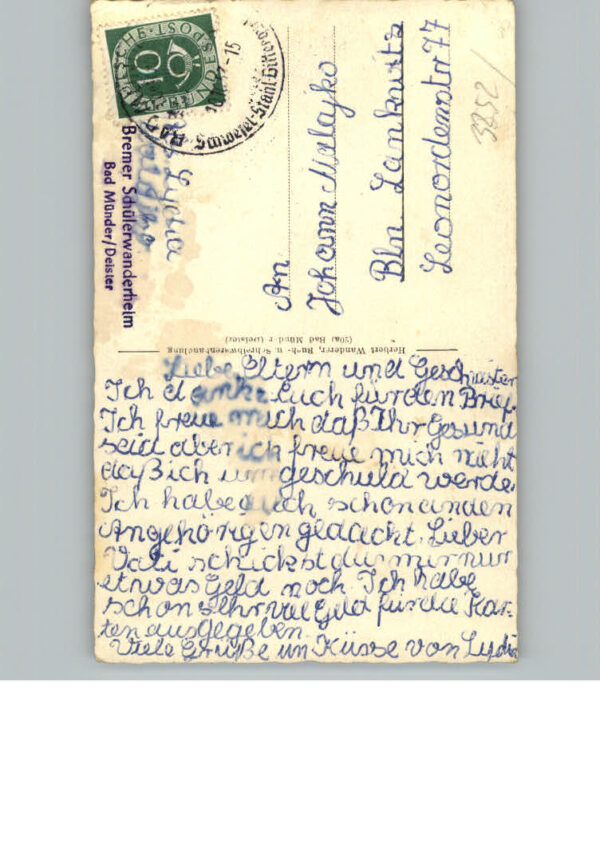 DEUTSCHE BUNDESPOST
10
Bremer Schülerwanderheim
Bad Münder/Deister
Lydia
An
Johann Malajko
Bln. Lankwitz
Leonorenstr 77
3252/
Herbert Wanderer, Buch- u. Schreibwarenhandlung
(20a) Bad Münder (Deister)
Liebe Eltern und Geschwister
Ich danke Euch für den Brief.
Ich freue mich daß Ihr Gesund
seid aber ich freue mich nicht
daß ich umgeschuld werde.
Ich habe auch schon an den
Angehörigen gedacht. Lieber
Vati schickst du mir nur
etwas Geld noch. Ich habe
schon sehr viel Geld für die Kar-
ten ausgegeben.
Viele Grüße un Küsse von Lydia